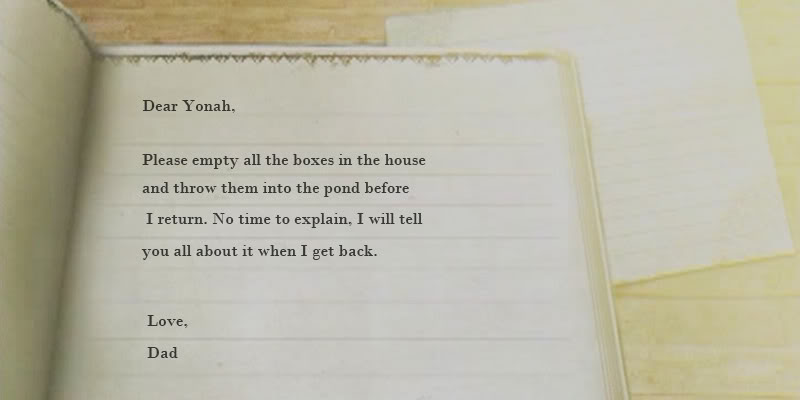 Dear Yonah,
Please empty all the boxes in the house
and throw them into the pond before
I return. No time to explain, I will tell
you all about it when I get back.
Love,
Dad